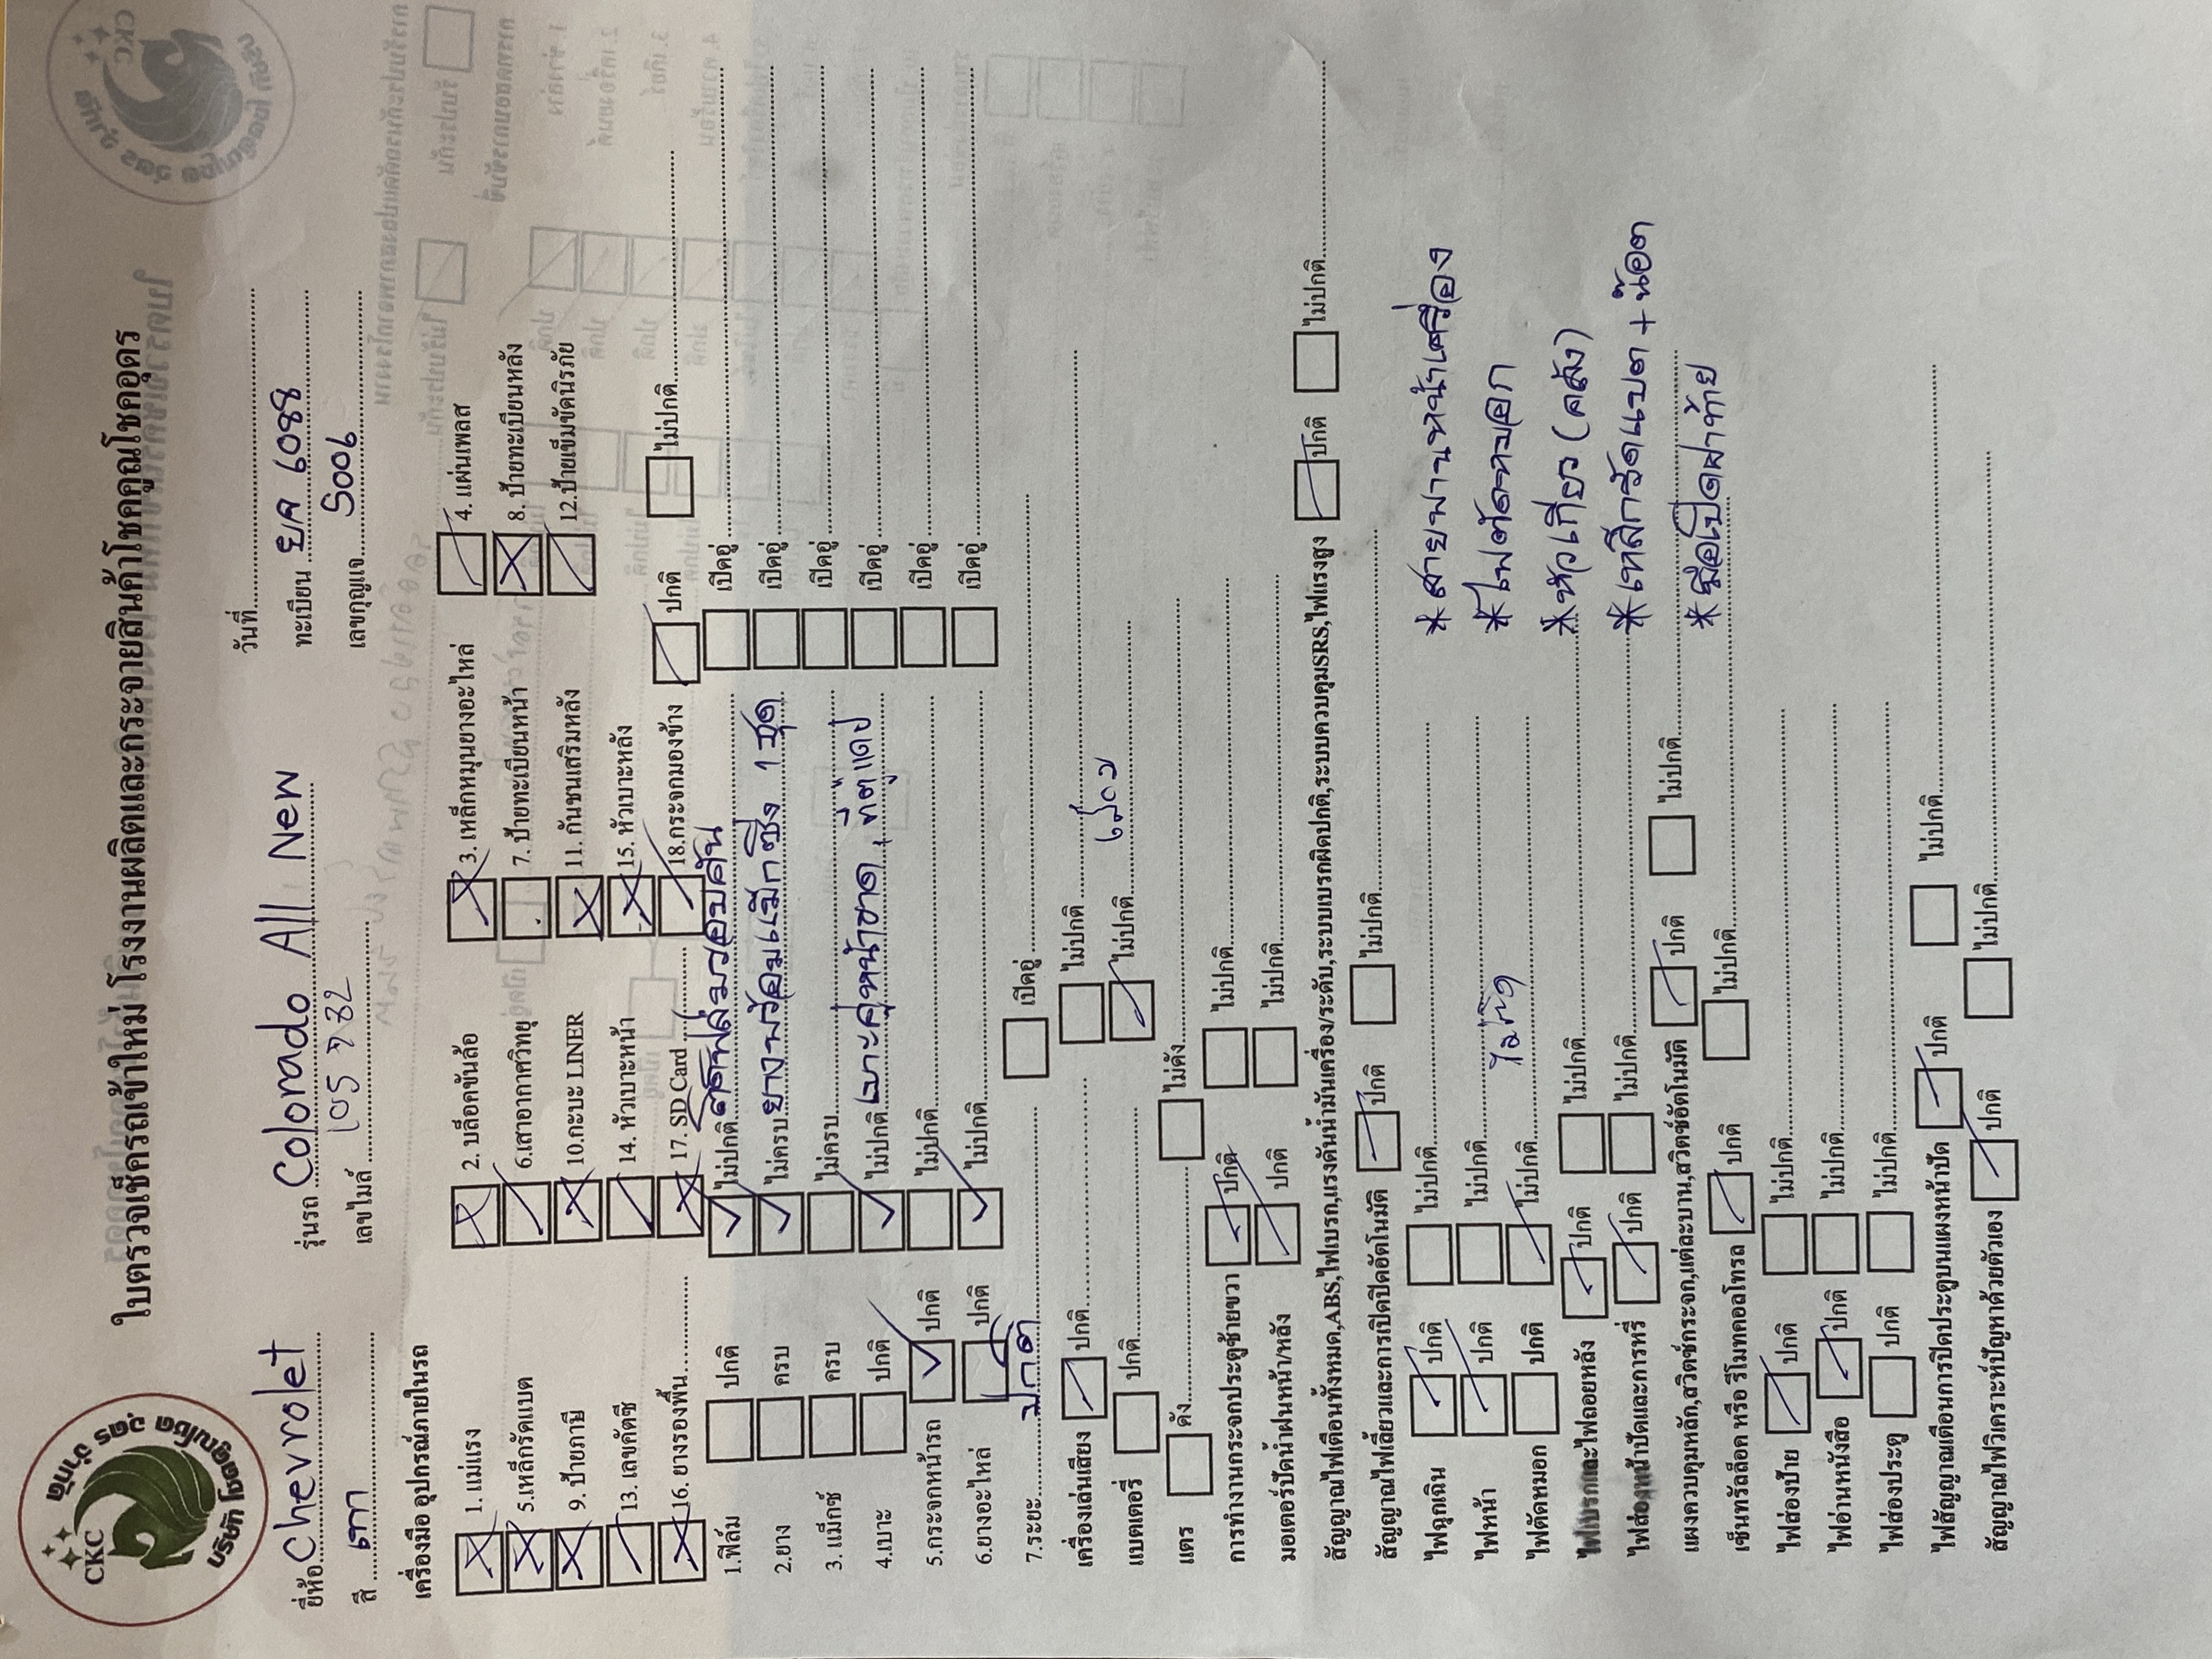 CKC
บริษัท โชคคูณโชค อุดร จำกัด
ใบตรวจเช็ครถเข้าใหม่ โรงงานผลิตและกระจายสินค้าโชคคูณโชคอุดร
วันที่
ยี่ห้อ Chevrolet รุ่นรถ Colorado All New ทะเบียน ยจ 6088
สี เทา เลขไมล์ เลขกุญแจ S006
เครื่องมือ อุปกรณ์ภายในรถ
1. แม่แรง 2. บล็อคขันล้อ 3. เหล็กหมุนยางอะไหล่ 4. แผ่นเพลส
5.เหล็กรัดแบต 6.เสาอากาศวิทยุ 7. ป้ายทะเบียนหน้า 8. ป้ายทะเบียนหลัง
9. ป้ายภาษี 10.กะบะ LINER 11. กันชนเสริมหลัง 12.ป้ายเข็มขัดนิรภัย
13. เลขคัดซี 14. หัวเบาะหน้า 15. หัวเบาะหลัง
16. ยางรองพื้น 17. SD Card 18.กระจกมองข้าง ปกติ ไม่ปกติ
1.ฟิล์ม ปกติ ไม่ปกติ ติดฟิล์มรอบคัน เบิดอู่
2.ยาง ครบ ไม่ครบ ยางพร้อมแม็กซิ่ง 1 ชุด เบิดอู่
3. แม็กซ์ ครบ ไม่ครบ เบิดอู่
4.เบาะ ปกติ ไม่ปกติ เบาะคู่หน้าขาด, เบิดอู่
5.กระจกหน้ารถ ปกติ ไม่ปกติ เบิดอู่
6.ยางอะไหล่ ปกติ ไม่ปกติ เบิดอู่
7.ระยะ ปกติ เบิดอู่
เครื่องเล่นเสียง ปกติ ไม่ปกติ
แบตเตอรี่ ปกติ ไม่ปกติ
แตร ดัง ไม่ดัง
การทำงานกระจกประตูซ้ายขวา ปกติ ไม่ปกติ
มอเตอร์ปัดน้ำฝนหน้า/หลัง ปกติ ไม่ปกติ
สัญญาณไฟเตือนทั้งหมด,ABS,ไฟเบรก,แรงดันน้ำมันเครื่อง/ระดับ,ระบบเบรกผิดปกติ,ระบบควบคุมSRS,ไฟแรงสูง ปกติ ไม่ปกติ
สัญญาณไฟเลี้ยวและการเปิดปิดอัตโนมัติ ปกติ ไม่ปกติ
ไฟฉุกเฉิน ปกติ ไม่ปกติ * สายพานหน้าเครื่อง
ไฟหน้า ปกติ ไม่ปกติ * ไฟตัดหมอก
ไฟตัดหมอก ปกติ ไม่ปกติ ไม่ติด
ไฟเบรกและไฟถอยหลัง ปกติ ไม่ปกติ * หัวเกียร (คลัง)
ไฟส่องหน้าปัดและการหรี่ ปกติ ไม่ปกติ * เหล็กรัดแบต + น๊อต
แผงควบคุมหลัก,สวิตซ์กระจก,แต่ละบาน,สวิตซ์อัตโนมัติ ปกติ ไม่ปกติ
เซ็นทรัลล็อค หรือ รีโมทคอลโทรล ปกติ ไม่ปกติ * มือเปิดฝาท้าย
ไฟส่องป้าย ปกติ ไม่ปกติ
ไฟอ่านหนังสือ ปกติ ไม่ปกติ
ไฟส่องประตู ปกติ ไม่ปกติ
ไฟสัญญาณเตือนการปิดประตูบนแผงหน้าปัด ปกติ ไม่ปกติ
สัญญาณไฟวิเคราะห์ปัญหาด้วยตัวเอง ปกติ ไม่ปกติ